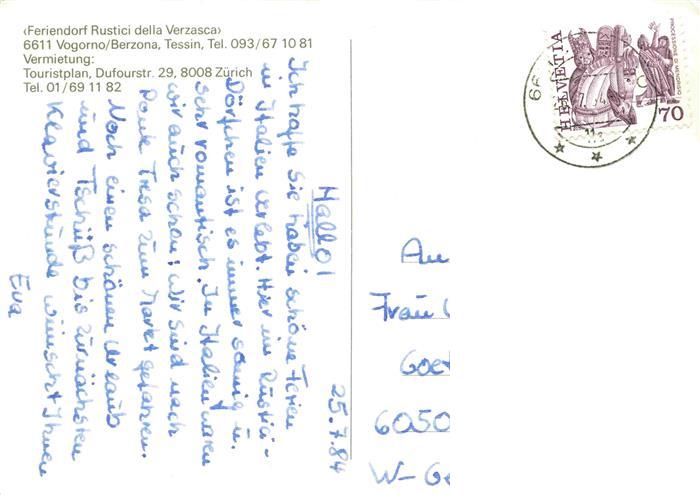 ‹Feriendorf Rustici della Verzasca›
6611 Vogorno/Berzona, Tessin, Tel. 093/67 10 81
Vermietung:
Touristplan, Dufourstr. 29, 8008 Zürich
Tel. 01/69 11 82
25.7.84
Hallo!
Ich hoffe Sie haben schöne Ferien
in Italien verlebt. Hier im Rustici-
Dörfchen ist es immer sonnig u.
sehr romantisch. In Italien waren
wir auch schon; wir sind nach
Ponte Tresa zum Markt gefahren.
Noch einen schönen Urlaub
und Tschüß bis zur nächsten
Klavierstunde wünscht Ihnen
Eva
HELVETIA
PROCESSIONE DI MENDRISIO
70
An
Frau
Goet
6050
W-Ge